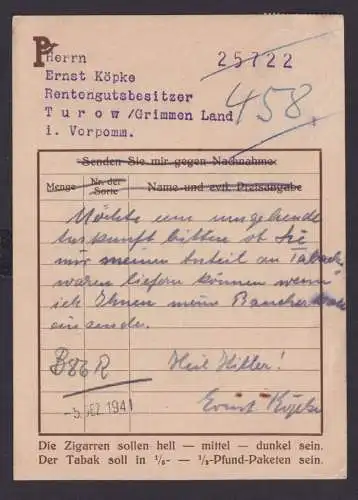 Herrn
25722
Ernst Köpke
Rentengutsbesitzer
458
Turow/Grimmen Land
i. Vorpomm.
Senden Sie mir gegen Nachnahme
Menge
Nr. der Sorte
Name und evtl. Preisangabe
Möchte um umgehende
Auskunft bitten ob Sie
mir meinen Anteil an Tabak
waren liefern können wenn
ich Ihnen meine
einsende.
B86R
Heil Hitler!
-5. DEZ. 1941
Ernst Köpke
Die Zigarren sollen hell — mittel — dunkel sein.
Der Tabak soll in 1/1- — 1/2-Pfund-Paketen sein.